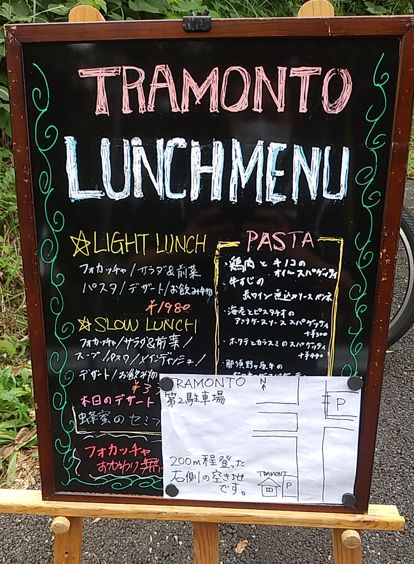 TRAMONTO
LUNCH MENU
☆LIGHT LUNCH
フォカッチャ/サラダ&前菜
パスタ/デザート/お飲み物
¥1980
☆SLOW LUNCH
フォカッチャ/サラダ&前菜/
スープ/パスタ/メインディッシュ/
デザート/お飲み物
¥3
本日のデザート
蜂蜜のセミフ
フォカッチャ
おかわり
PASTA
・鶏肉とキノコの
オイルスパゲッティ
・牛すじの
赤ワイン煮込みソース
・海老とピスタチオの
スパゲッティ
・ホタテとカラスミのスパゲッティ
¥440
・那須野ヶ原牛の
TRAMONTO
第2駐車場
200m程登った
右側の空き地
です。
N
P
TRAMONTO
P